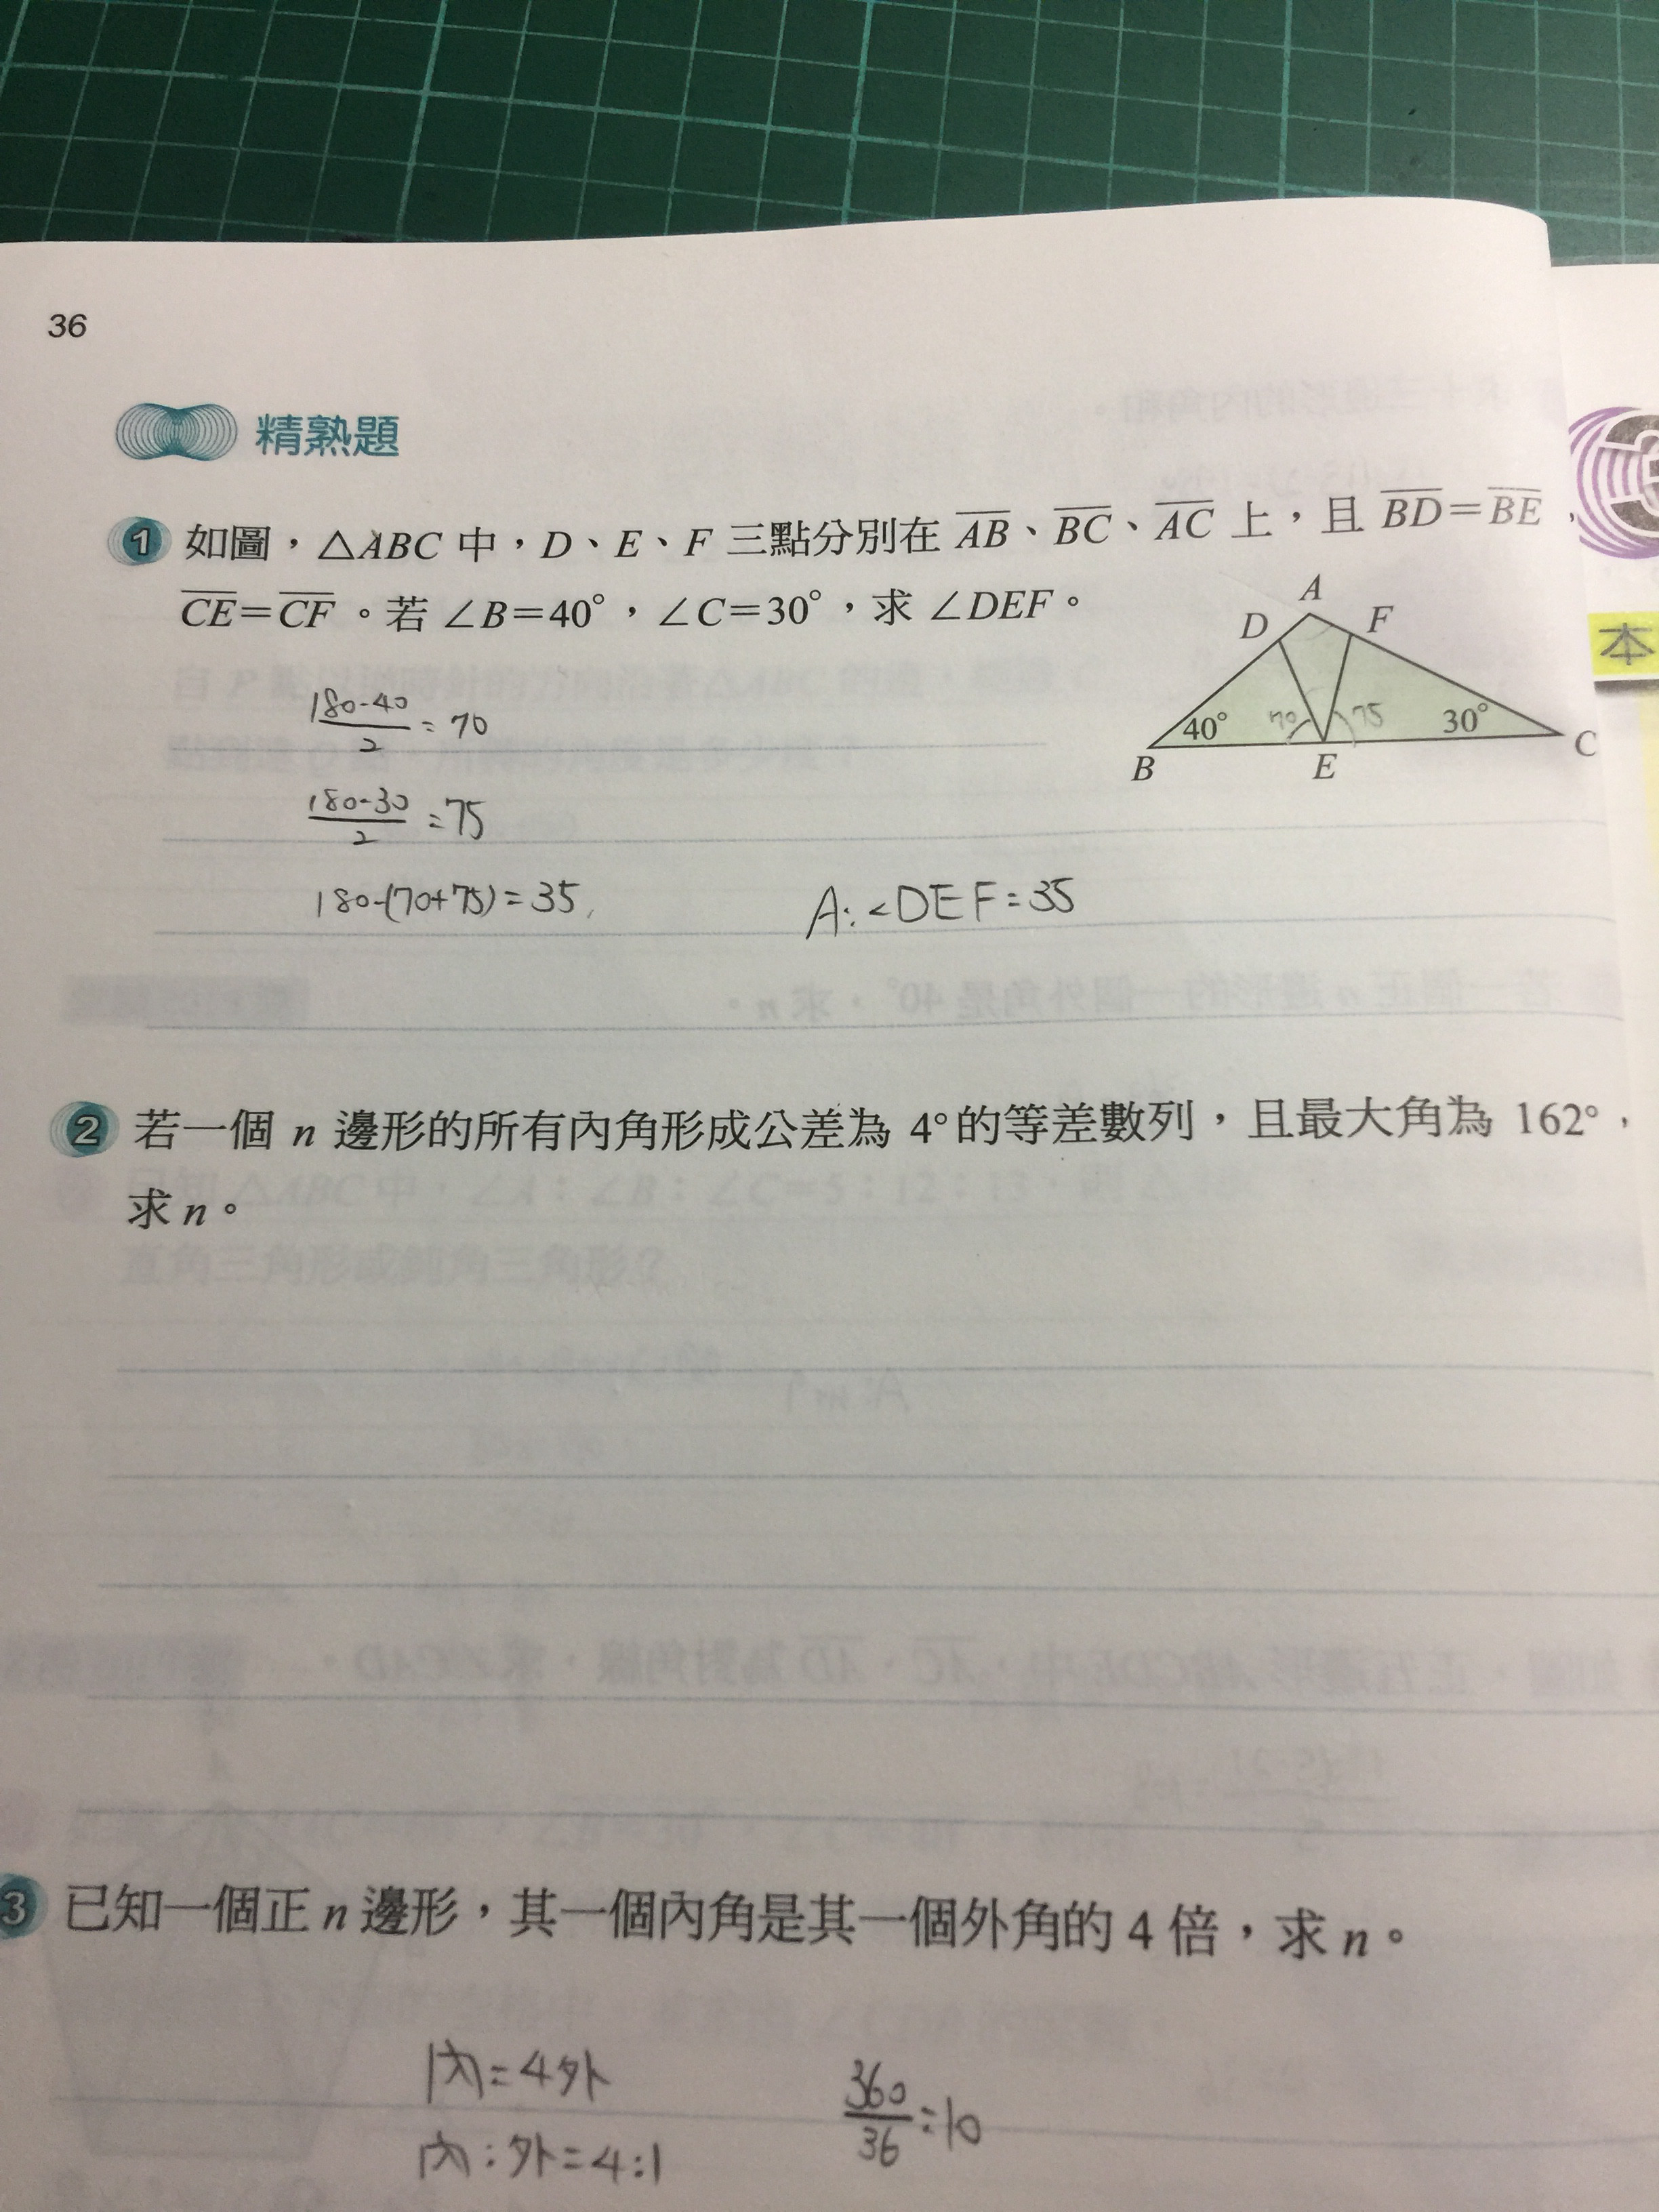 36
精熟題
1 如圖，△ABC 中，D、E、F 三點分別在 AB、BC、AC 上，且 BD＝BE，
CE＝CF。若 ∠B＝40°，∠C＝30°，求 ∠DEF。
A
D
F
40°
70
75
30°
B
E
C
本
180-40
2
= 70
180-30
2
=75
180-(70+75)=35
A:∠DEF=35
2 若一個 n 邊形的所有內角形成公差為 4°的等差數列，且最大角為 162°，
求 n。
3 已知一個正 n 邊形，其一個內角是其一個外角的 4 倍，求 n。
內=4外
內:外=4:1
360
36
=10